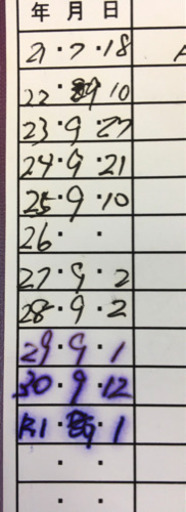 年 月 日
21・7・18
22・9 10
23・9・27
24・9・21
25・9・10
26・ ・
27・9・2
28・9・2
29・9・1
30・9・12
R1・9・1
・ ・
・ ・